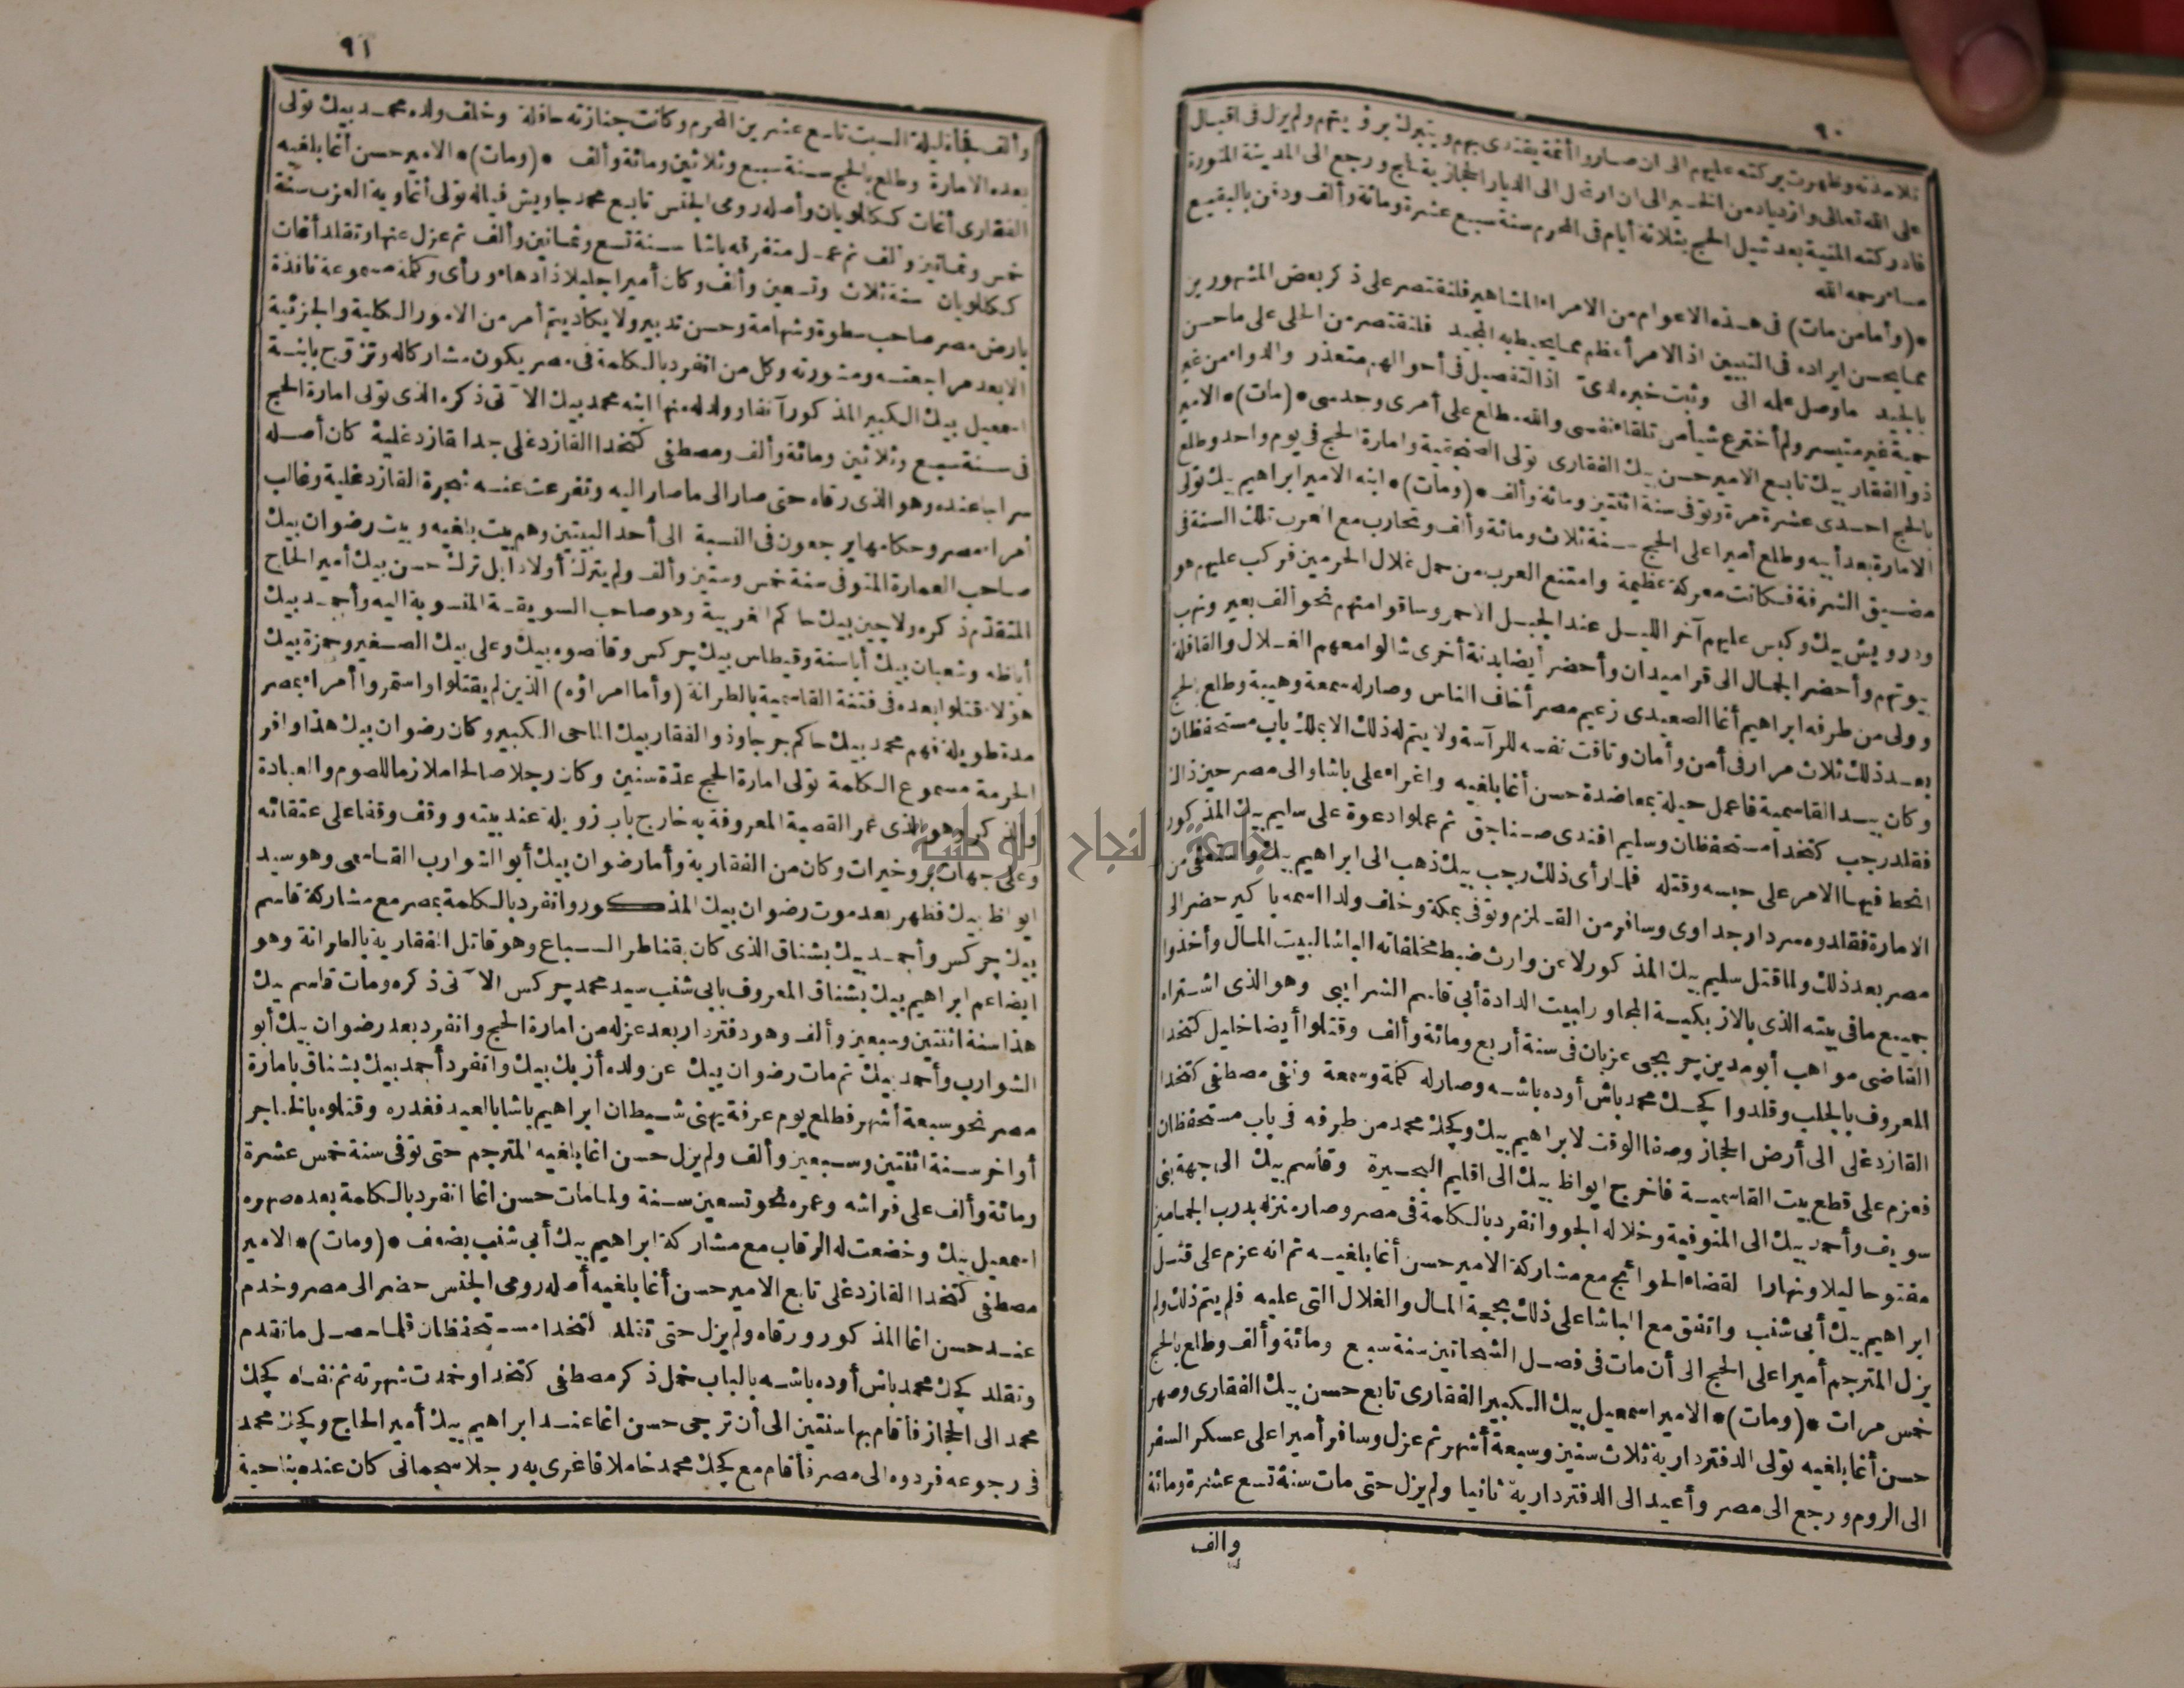 ٩٠
تلامذته وظهرت بركته عليهم الى ان صاروا أئمة يقتدى بهم ويتبرك برؤيتهم ولم يزل فى اقبال
على الله تعالى وازدياد من الخير الى ان ارتحل الى الديار الحجازية فحج ورجع الى المدينة المنورة
فادركته المنية بعد شيل الحج بثلاثة أيام فى المحرم سنة سبع عشرة ومائة وألف ودفن بالبقيع
مساء رحمه الله
*(وأما من مات) فى هذه الاعوام من الامراء المشاهير فلنقتصر على ذكر بعض المشهورين
مما يحسن ايراده فى التبيين اذ الامر أعظم مما يحيط به المجيد فلنقتصر من الحلى على ما حسن
بالجيد ما وصل علمه الى وثبت خبره لدى اذ التفصيل فى أحوالهم متعذر والدواء من غير
حمية غير متيسر ولم أخترع شيأ من تلقاء نفسى والله مطلع على أمرى وحدسى *(مات)* الامير
ذو الفقار بيك تابع الامير حسن بيك الفقارى تولى الصنجقية وامارة الحج فى يوم واحد وطلع
بالحج احدى عشرة مرة وتوفى سنة اثنتين ومائة وألف *(ومات)* ابنه الامير ابراهيم بيك تولى
الامارة بعد أبيه وطلع أميرا على الحج سنة ثلاث ومائة وألف وتحارب مع العرب تلك السنة فى
مضيق الشرفة فكانت معركة عظيمة وامتنع العرب من حمل غلال الحرمين فركب عليهم هو
ودرويش بيك وكبس عليهم آخر الليل عند الجبل الاحمر وساقوا منهم نحو ألف بعير ونهب
بيوتهم وأحضر الجمال الى قراميدان وأحضر أيضا بدنة أخرى شالوا معهم الغلال والقافلة
وولى من طرفه ابراهيم أغا الصعيدى زعيم مصر أخاف الناس وصار له سمعة وهيبة وطلع بالحج
بعد ذلك ثلاث مرار فى أمن وأمان وتاقت نفسه للرآسة ولا يتم له ذلك الا بملك باب مستحفظان
وكان بيد القاسمية فاعمل حيلة بمعاضدة حسن أغا بلغيه واغراء على باشا والى مصر حين ذاك
فقلد رجب كتخدا مستحفظان وسليم افندى صناجق ثم عملوا دعوة على سليم بيك المذكور
انحط فيها الامر على حبسه وقتله فلما رأى ذلك رجب بيك ذهب الى ابراهيم بيك واستعفى من
الامارة فقلدوه سردار جداوى وسافر من القلزم وتوفى بمكة وخلف ولدا اسمه باكير حضر الى
مصر بعد ذلك ولما قتل سليم بيك المذكور لا عن وارث ضبط مخلفاته الباشا لبيت المال وأخذوا
جميع ما فى بيته الذى بالازبكية المجاور لبيت الدادة أبى قاسم الشرايبى وهو الذى اشتراه
القاضى مواهب أبو مدين چربجى عزبان فى سنة أربع ومائة وألف وقتلوا أيضا خليل كتخدا
المعروف بالجلب وقلدوا كچك محمد باش أوده باشه وصار له كلمة وسمعة ونفى مصطفى كتخدا
القازدغلى الى أرض الحجاز وصفا الوقت لابراهيم بيك وكچك محمد من طرفه فى باب مستحفظان
فعزم على قطع بيت القاسمية فاخرج ايواظ بيك الى اقليم البحيرة وقاسم بيك الى جهة بنى
سويف وأحمد بيك الى المنوفية وخلا له الجو وانفرد بالكلمة فى مصر وصار منزله بدرب الجماميز
مفتوحا ليلا ونهارا لقضاء الحوائج مع مشاركة الامير حسن أغا بلغيه ثم انه عزم على قتل
ابراهيم بيك أبى شنب واتفق مع الباشا على ذلك بحجة المال والغلال التى عليه فلم يتم ذلك ولم
يزل المترجم أميرا على الحج الى أن مات فى فصل الشحاتين سنة سبع ومائة وألف وطلع بالحج
خمس مرات *(ومات)* الامير اسمعيل بيك الكبير الفقارى تابع حسن بيك الفقارى وصهر
حسن أغا بلغيه تولى الدفتردارية ثلاث سنين وسبعة أشهر ثم عزل وسافر أميرا على عسكر السفر
الى الروم ورجع الى مصر وأعيد الى الدفتردارية ثانيا ولم يزل حتى مات سنة تسع عشرة ومائة
وألف
٩١
وألف فجأة ليلة السبت تاسع عشرين المحرم وكانت جنازته حافلة وخلف ولده محمد بيك تولى
بعده الامارة وطلع بالحج سنة سبع وثلاثين ومائة وألف *(ومات)* الامير حسن أغا بلغيه
الفقارى أغات ككللويان وأصله رومى الجنس تابع محمد جاويش فياله تولى أغاوية العزب سنة
خمس وثمانين وألف ثم عمل متفرقه باشا سنة تسع وثمانين وألف ثم عزل عنها وتقلد أغات
ككللويان سنة ثلاث وتسعين وألف وكان أميرا جليلا ذا دهاء ورأى وكلمة مسموعة نافذة
بارض مصر صاحب سطوة وشهامة وحسن تدبير ولا يكاد يتم أمر من الامور الكلية والجزئية
الا بعد مراجعته ومشورته وكل من انفرد بالكلمة فى مصر يكون مشاركا له وتزوج بابنته
اسمعيل بيك الكبير المذكور آنفا وولد له منها ابنه محمد بيك الآتى ذكره الذى تولى امارة الحج
فى سنة سبع وثلاثين ومائة وألف ومصطفى كتخدا القازدغلى جد القازدغلية كان أصله
سراجا عنده وهو الذى رقاه حتى صار الى ما صار اليه وتفرعت عنه شجرة القازدغلية وغالب
أمراء مصر وحكامها يرجعون فى النسبة الى أحد البيتين وهم بيت بلغيه وبيت رضوان بيك
صاحب العمارة المتوفى سنة خمس وستين وألف ولم يترك أولادا بل ترك حسن بيك أمير الحاج
المتقدم ذكره ولاچين بيك حاكم الغربية وهو صاحب السويقة المنسوبة اليه وأحمد بيك
أباظه وشعبان بيك أبا سنة وقيطاس بيك چركس وقانصوه بيك وعلى بيك الصغير وحمزة بيك
هؤلاء قتلوا بعده فى فتنة القاسمية بالطرانة (وأما امراؤه) الذين لم يقتلوا واستمروا أمراء بمصر
مدة طويلة فهم محمد بيك حاكم جرجا وذو الفقار بيك الماحى الكبير وكان رضوان بيك هذا وافر
الحرمة مسموع الكلمة تولى امارة الحج عدة سنين وكان رجلا صالحا ملازما للصوم والعبادة
والذكر وهو الذى عمر القصبة المعروفة به خارج باب زويلة عند بيته ووقف وقفا على عتقائه
وعلى جهات بر وخيرات وكان من الفقارية وأما رضوان بيك أبو الشوارب القاسمى وهو سيد
ايواظ بيك فظهر بعد موت رضوان بيك المذكور وانفرد بالكلمة بمصر مع مشاركة قاسم
بيك چركس وأحمد بيك بشناق الذى كان بقناطر السباع وهو قاتل الفقارية بالطرانة وهو
ايضا عم ابراهيم بيك بشناق المعروف بابى شنب سيد محمد چركس الآتى ذكره ومات قاسم بيك
هذا سنة اثنتين وسبعين وألف وهو دفتردار بعد عزله من امارة الحج وانفرد بعد رضوان بيك أبو
الشوارب وأحمد بيك ثم مات رضوان بيك عن ولده أزبك بيك وانفرد أحمد بيك بشناق بامارة
مصر نحو سبعة أشهر فطلع يوم عرفة يهنى شيطان ابراهيم باشا بالعيد فغدره وقتلوه بالخناجر
أواخر سنة اثنتين وسبعين وألف ولم يزل حسن اغا بلغيه المترجم حتى توفى سنة خمس عشرة
ومائة وألف على فراشه وعمره نحو تسعين سنة ولما مات حسن اغا انفرد بالكلمة بعده صهره
اسمعيل بيك وخضعت له الرقاب مع مشاركة ابراهيم بيك أبى شنب بضعف *(ومات)* الامير
مصطفى كتخدا القازدغلى تابع الامير حسن أغا بلغيه أصله رومى الجنس حضر الى مصر وخدم
عند حسن اغا المذكور ورقاه ولم يزل حتى تقلد كتخدا مستحفظان فلما حصل ما تقدم
وتقلد كچك محمد باش أوده باشه بالباب خمل ذكر مصطفى كتخدا وخمدت شهرته ثم نفاه كچك
محمد الى الحجاز فأقام بها سنتين الى أن ترجى حسن اغا عند ابراهيم بيك أمير الحاج وكچك محمد
فى رجوعه فردوه الى مصر فأقام مع كچك محمد خاملا فاغرى به رجلا سجمانى كان عنده بناحية
جامعة النجاح الوطنية